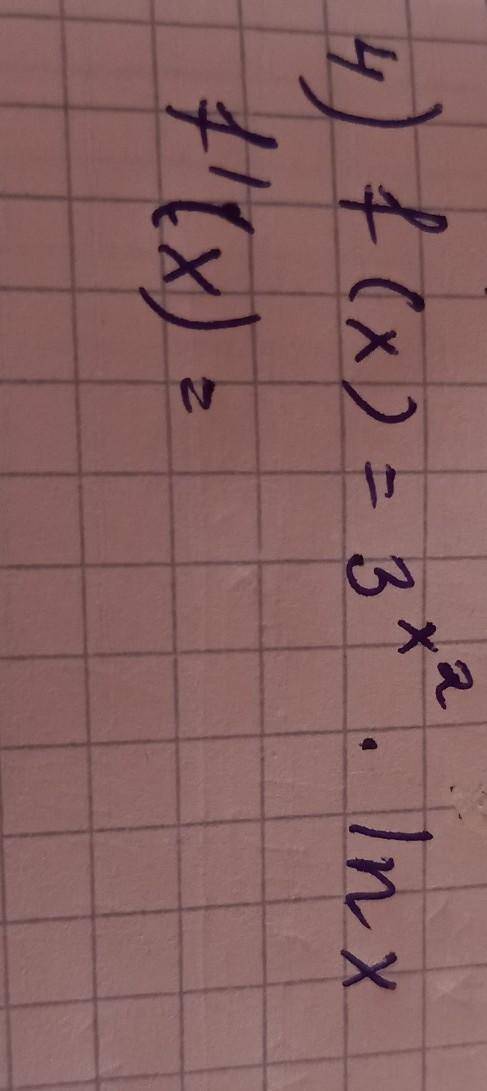 4) f(x) = 3^x^2 · ln x
f'(x) =